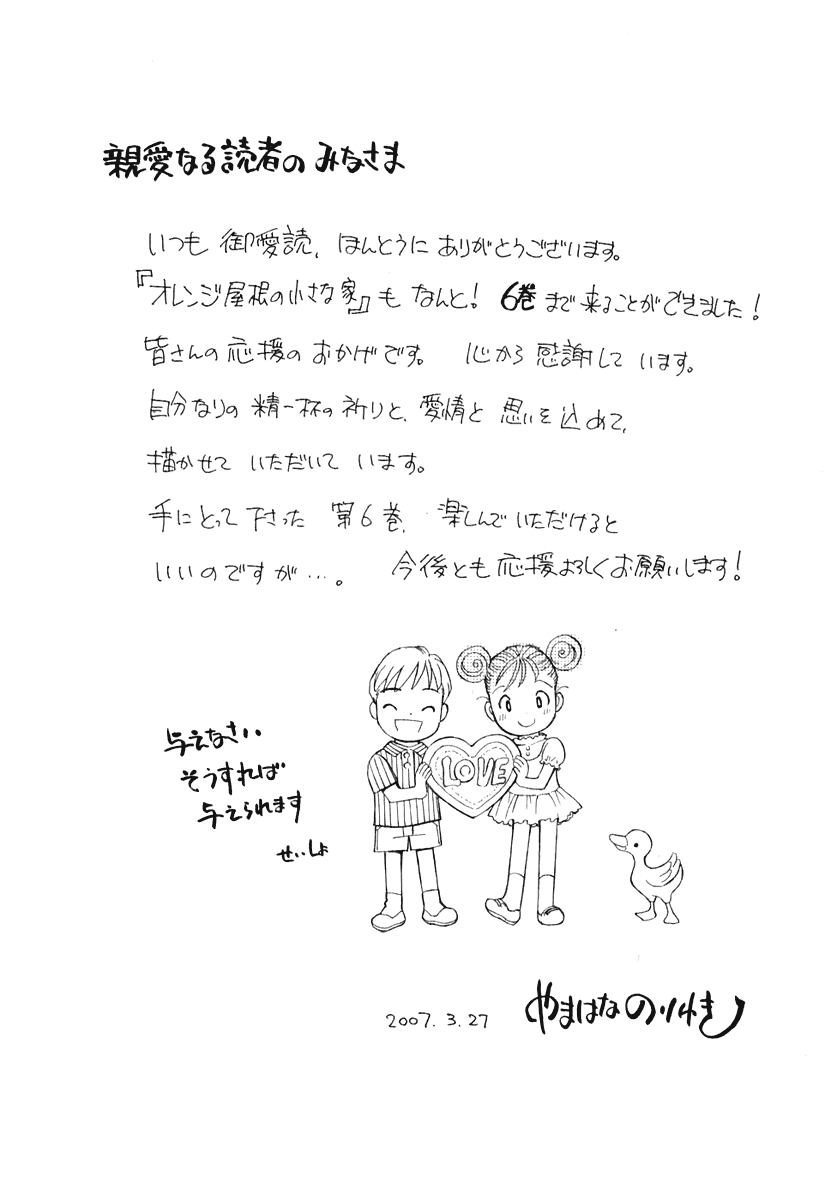 親愛なる読者の みなさま
いつも 御愛読、ほんとうに ありがとうございます。
『オレンジ屋根の小さな家』も なんと! 6巻 まで 来ることができました!
皆さんの 応援の おかげです。 心から 感謝して います。
自分なりの 精一杯の 祈りと、愛情と 思いを 込めて、
描かせて いただいて います。
手にとって 下さった 第6巻、楽しんで いただけると
いいのですが…。 今後とも 応援よろしくお願いします!
LOVE
与えなさい
そうすれば
与えられます
せいしょ
2007. 3. 27
やまはな のりゆき